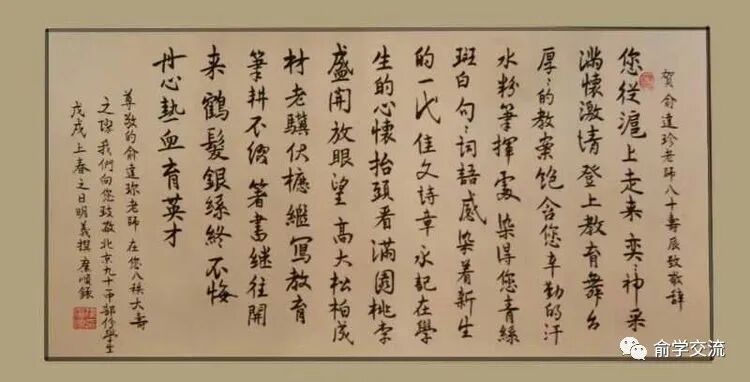 贺俞達珍老師八十壽辰致敬辞
您從滬上走来奕々神采
满懷激情登上教育舞台
厚々的教案飽含您辛勤的汗
水粉筆揮處染得您青絲
斑白句々詞語感染着新生
的一代佳文詩章永記在學
生的心懷抬頭看滿園桃李
盛開放眼望高大松柏成
材老驥伏櫪繼寫教育
筆耕不缀著書继往開
来鶴髮銀絲終不悔
丹心熱血育英才
尊敬的俞達珍老師在您八秩大壽
之際我們向您致敬北京九十中部份學生
戊戌上春之日明義撰
俞学交流